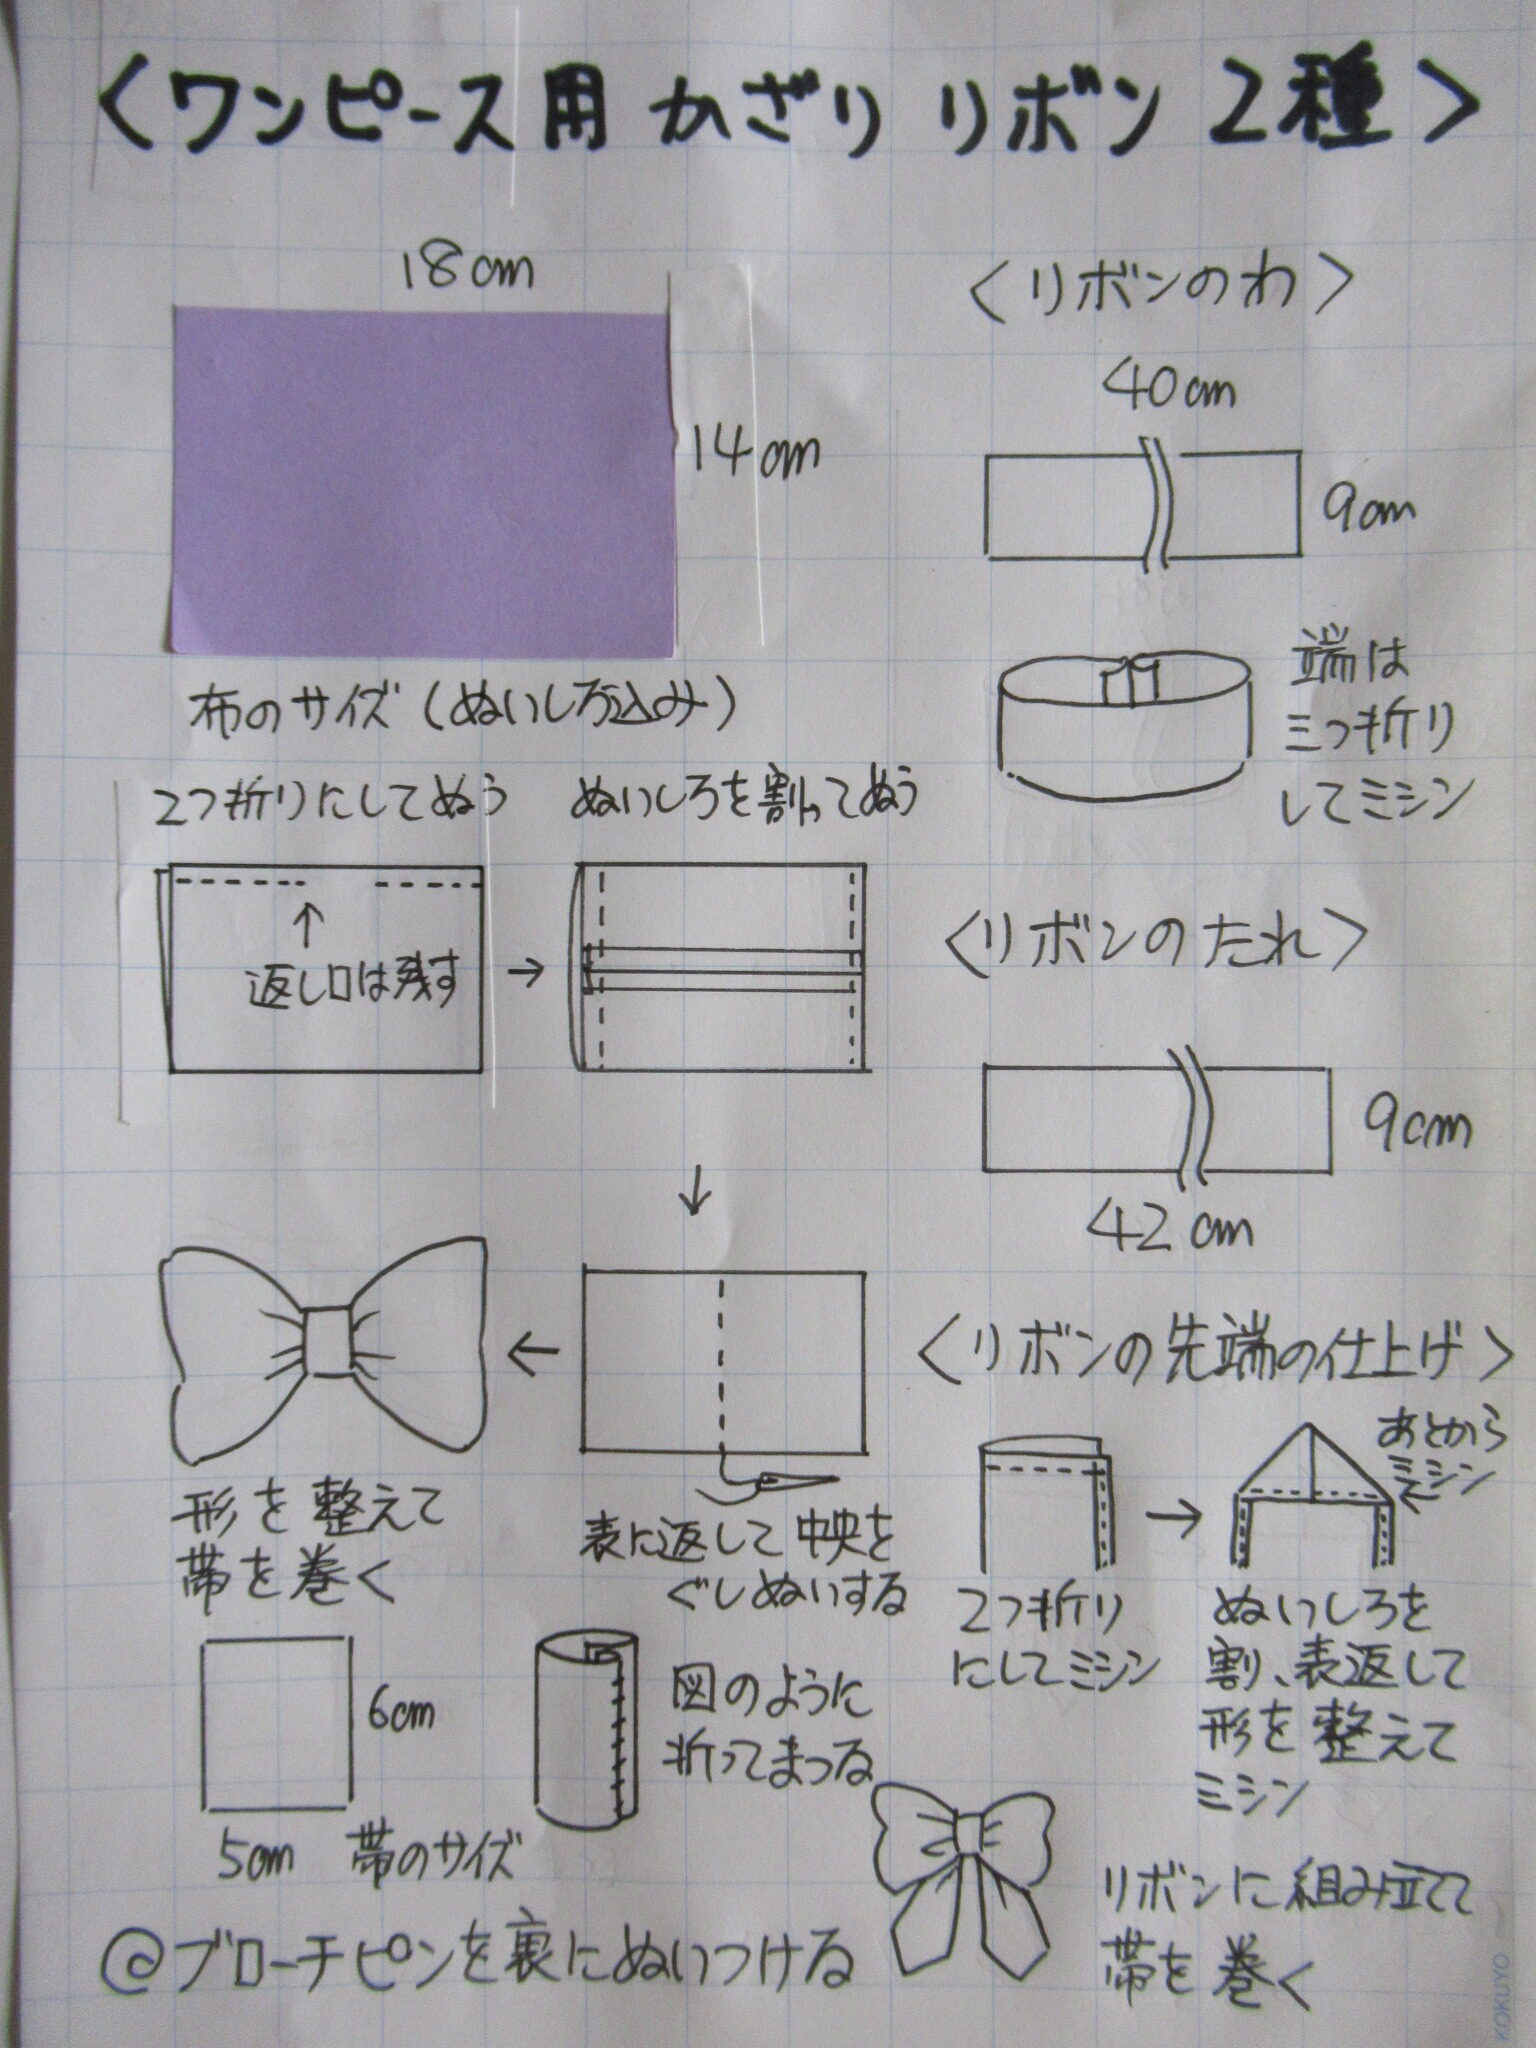 <ワンピース用 かざり リボン 2種>
18cm
14cm
布のサイズ(ぬいしろ込み)
2つ折りにしてぬう
ぬいしろを割ってぬう
返し口は残す
表に返して中央を
ぐしぬいする
形を整えて
帯を巻く
6cm
5cm 帯のサイズ
図のように
折ってまつる
@ブローチピンを裏にぬいつける
<リボンのわ>
40cm
9cm
端は
三つ折り
してミシン
<リボンのたれ>
9cm
42cm
<リボンの先端の仕上げ>
あとから
ミシン
2つ折り
にしてミシン
ぬいしろを
割、表返して
形を整えて
ミシン
リボンに組み立てて
帯を巻く
KOKUYO